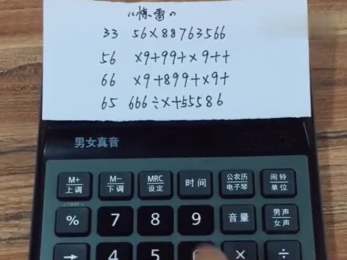 "情雷"
33 56×88763566
56 ×9+99+×9++
66 ×9+899+×9+
65 666÷×+55586
男女真音
M+ 上调 M- 下调 MRC 设定 时间 公农历 电子琴 闹铃 单位
% 7 8 9 音量 男声 女声
→ 4 5 × ÷